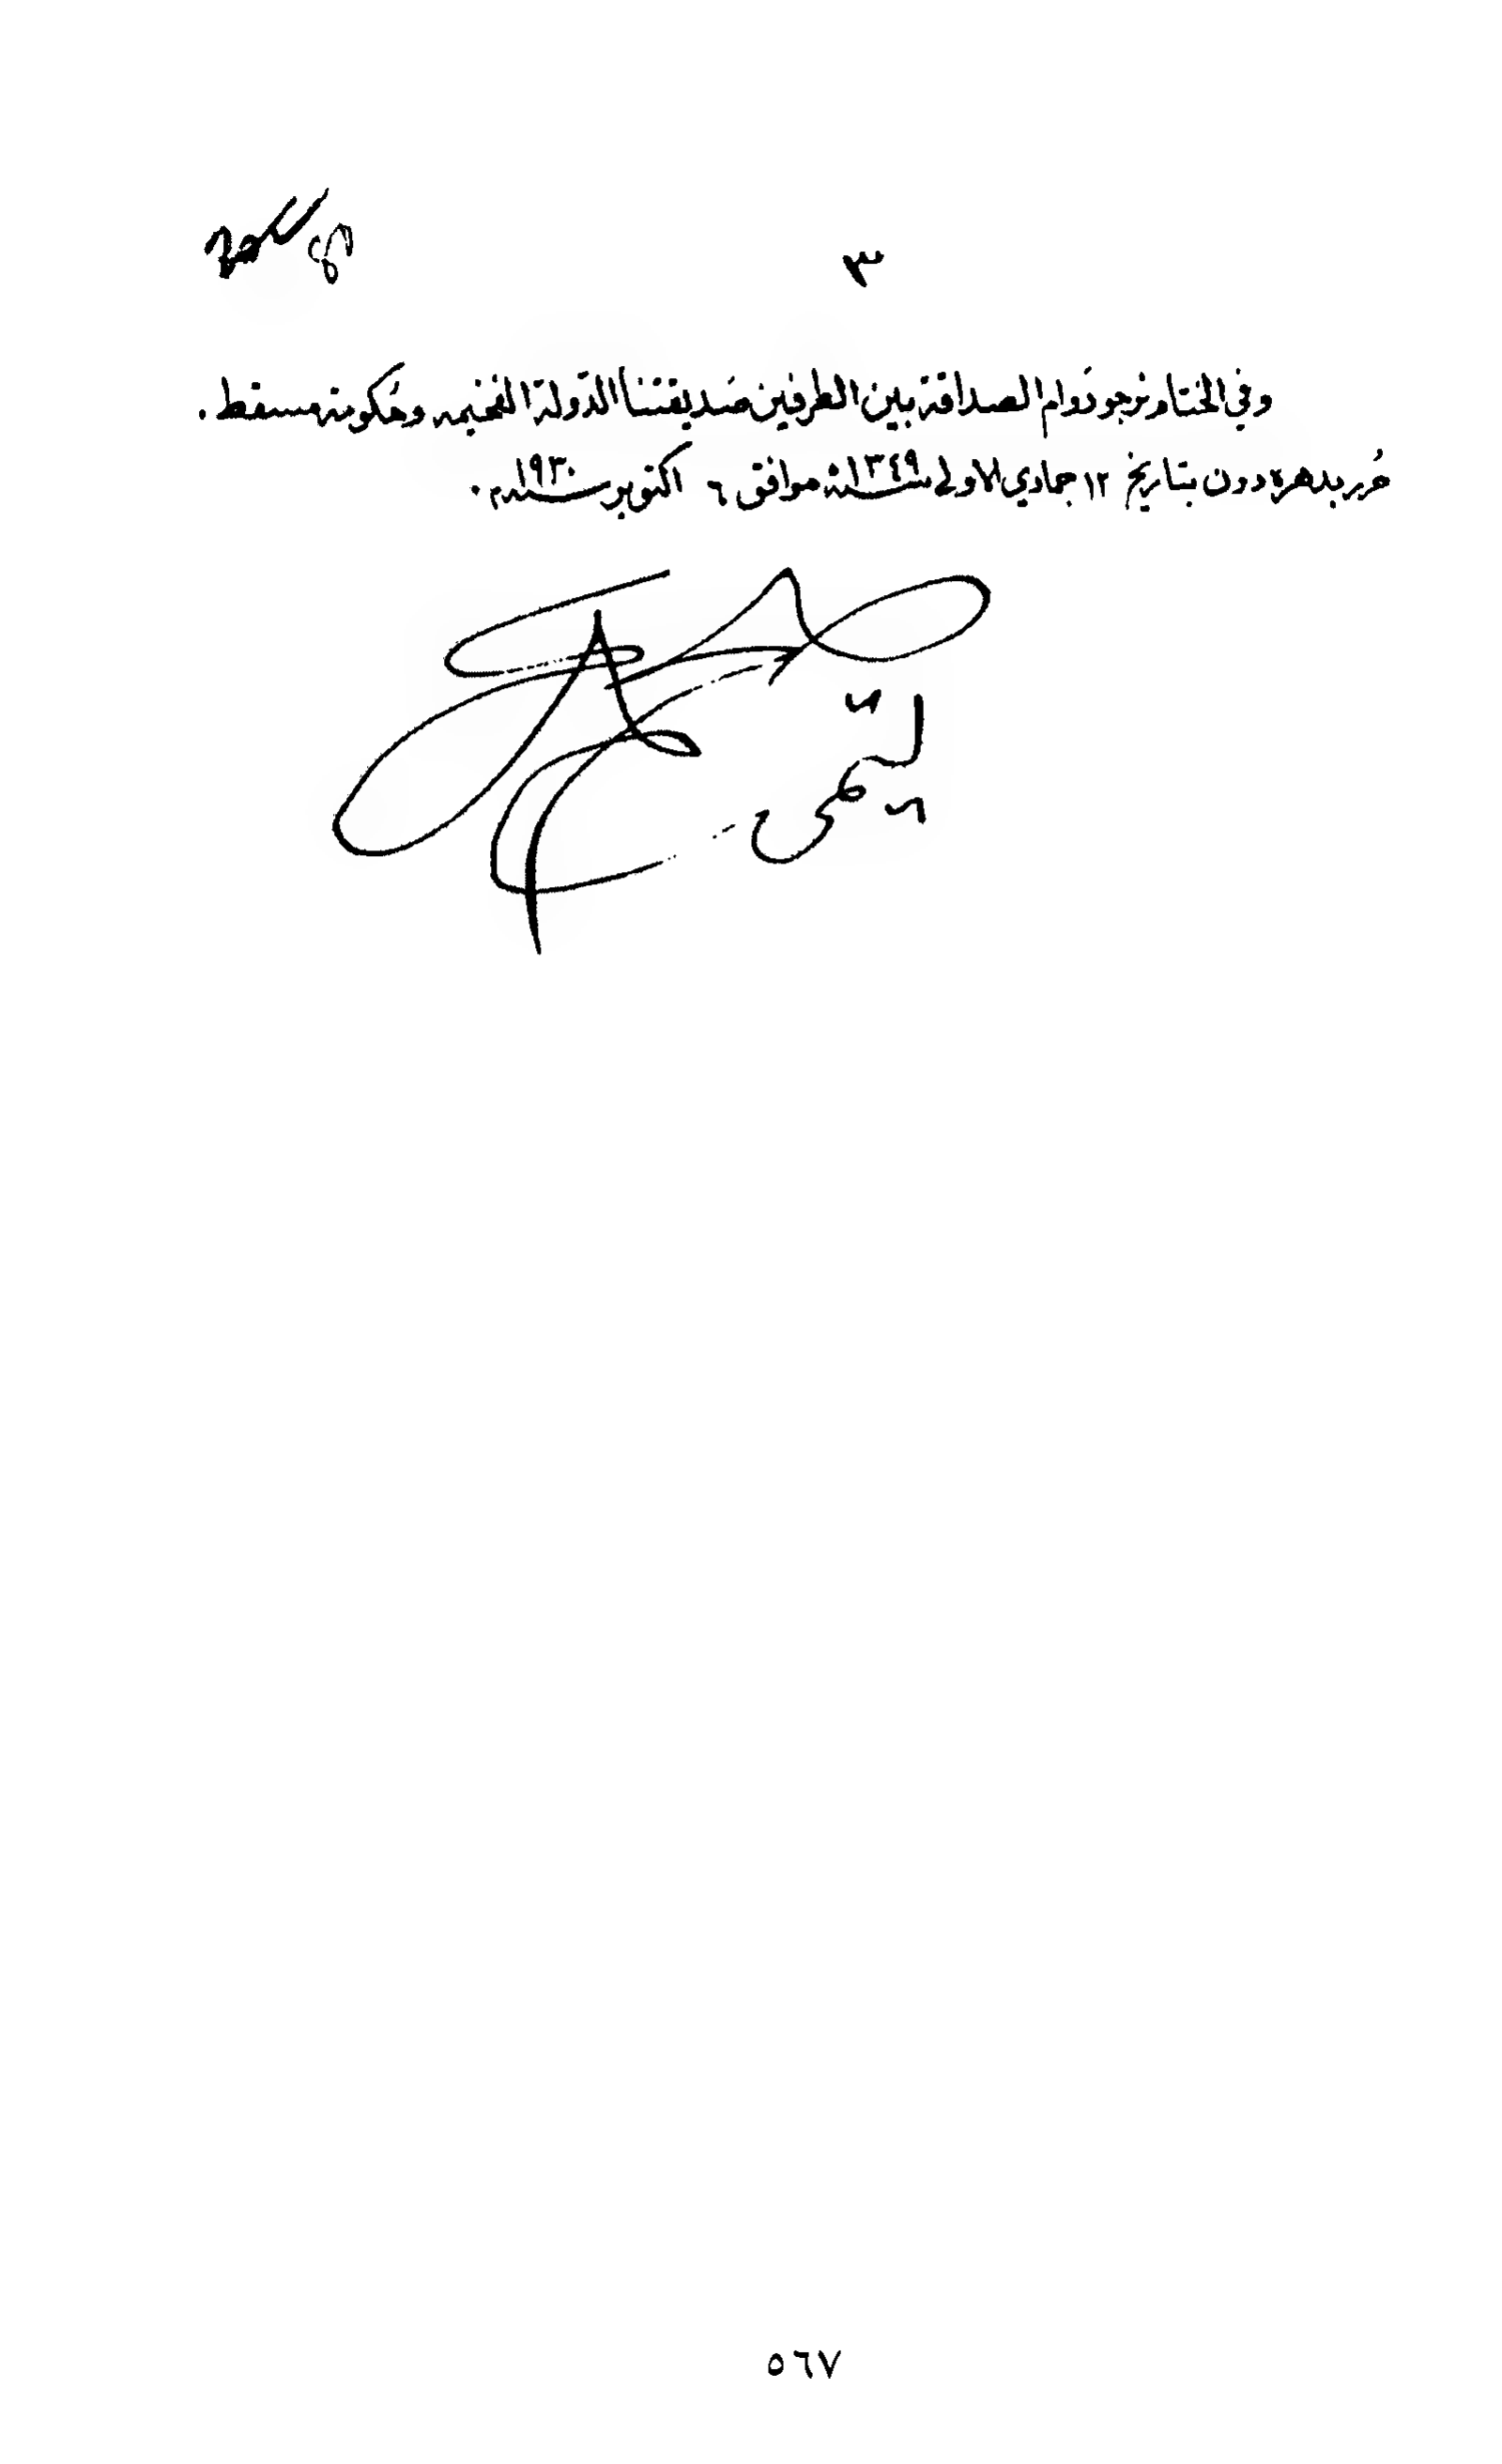 ٣
وفي الختام نرجو دَوام الصداقة بين الطرفين صَديقتنا الدّولة الفخيمه وحُكومة مسقط .
حُرر بدهره دون بتاريخ ١٢ جمادي الاولى سنة ١٣٤٩ موافق ٦ اكتوبر سنه ١٩٣٠ م .
٥٦٧